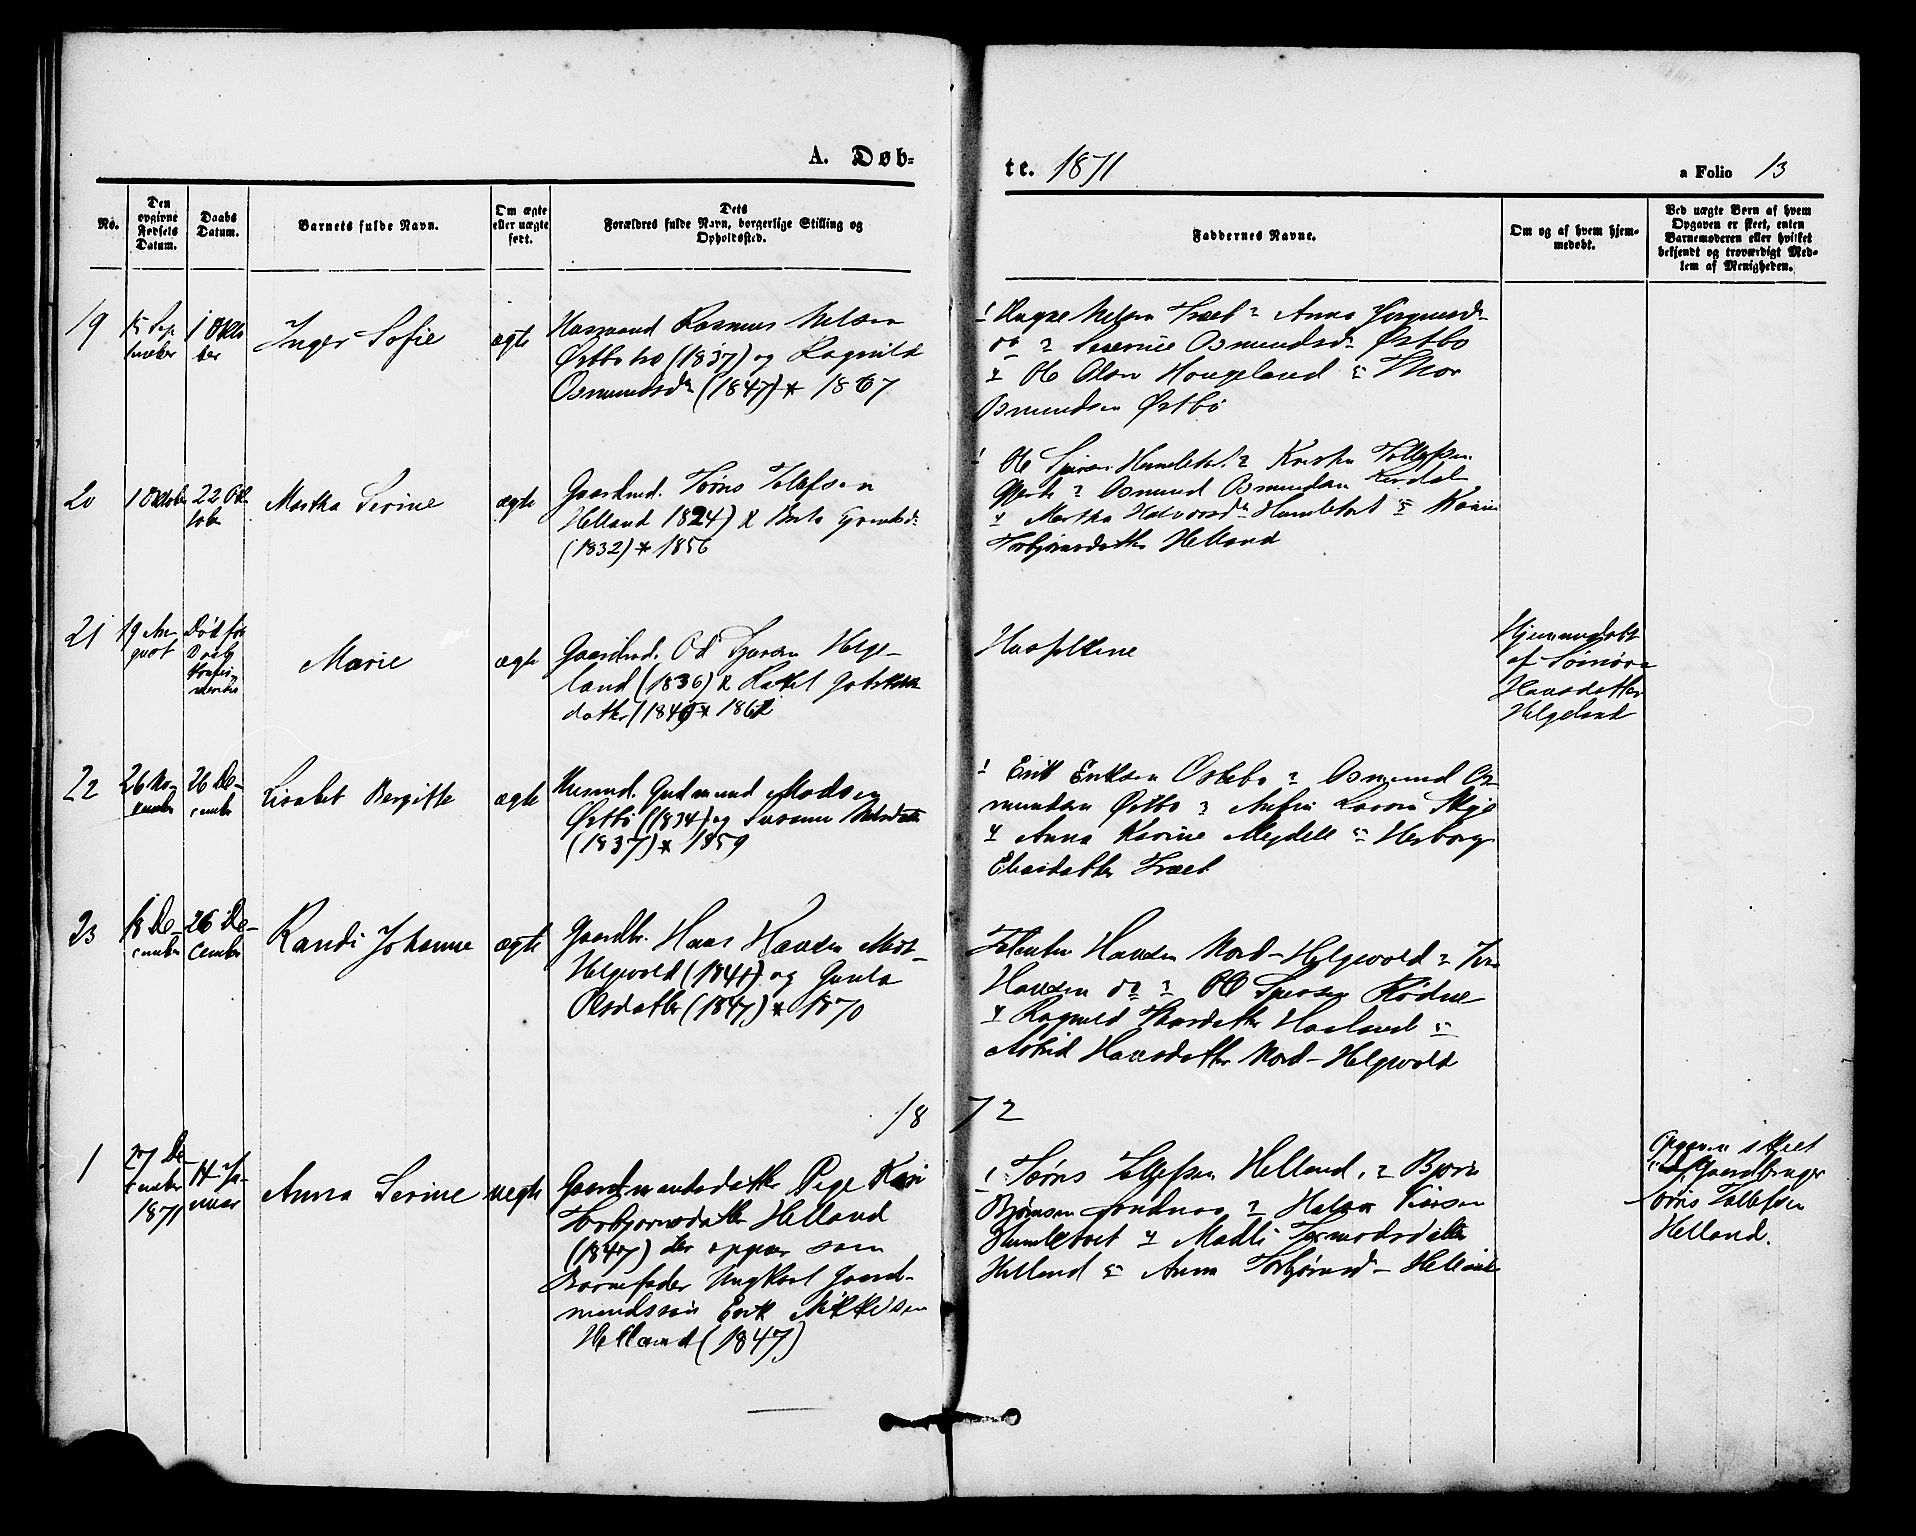 A. Døb-
te. 1871
a Folio 13
No.
Den opgivne Fødsels Datum.
Daabs Datum.
Barnets fulde Navn.
Om ægte eller uægte født.
Dets
Forældres fulde Navn, borgerlige Stilling og
Opholdssted.
Faddernes Navne.
Om og af hvem hjem-
medøbt.
Ved uægte Børn af hvem
Opgaven er skeet, enten
Barnemoderen eller hvilket
bekjendt og troværdigt Med-
lem af Menigheden.
19
15 Sep
tember
1 Okto
ber
Inger Sofie
ægte
Husmand Rasmus Nelsen
Østbø (1837) og Ragnild
Osmundsd. (1847) * 1867
1 Nelsen Træet 2 Anna
do 3 Severine Osmundsd. Østbø
4 Ole Olsen Hougeland 5 Thor
Osmundsen Østbø
20
1 Oktober
22 Ok
tober
Martha Serine
ægte
Gaardmd. Tønes Tolefsen
Helland 1824) &
(1832) * 1856
1 Ole Humletvet 2 Tollefsen
3 Osmund Osmundsen
4 Martha Halvorsd. Humletvet 5 Karin
Torbjørnsdatter Helland
21
19 Au-
gust
Død før
Daabs
Marie
ægte
Gaardmd. Helge-
land (1836) & Rakel
datter (1840) * 1862
Husfolkene
Hjemmedøbt
af
Hansdatter
Helgeland
22
26 No-
vember
26 De-
cember
Lisabet Bergitte
ægte
Husmd. Gudmund Madsen
Østbø (1834) og Susanne Nelsdatter
(1837) * 1859
1 Erik Eriksen Østebø 2 Osmund Os-
mundsen Østbø 3
4 Anna Karine Meydell 5 Herborg
Eliasdatter Træet
23
18 De-
cember
26 De-
cember
Randi Johanne
ægte
Gaardbr. Hans Hansen
Helgevold (1841) og Gunla
Olsdatter (1847) * 1870
Hansen Nord-Helgevold 2
Hansen do 3 Ole Rødne
4 Ragnild Haaland 5
Astrid Hansdatter Nord-Helgevold
1872
1
27 De-
cember
1871
14 Ja-
nuar
Anna Serine
uægte
Gaardmandsdatter Pige Kari
Torbjørnsdatter Helland
(1847) der opgav som
Barnefader Ungkarl Gaard-
mandssøn Erik Mikkelsen
Helland (1847)
1 Tønes Tollefsen Helland, 2 Bjørn
Bjørnsen Sandnæs 3
Humletvet 4 Madli Tormodsdatter
Helland 5 Anna Torbjørnsd- Helland
Opgaven skeet
af Gaardbruger
Tønes Tollefsen
Helland.